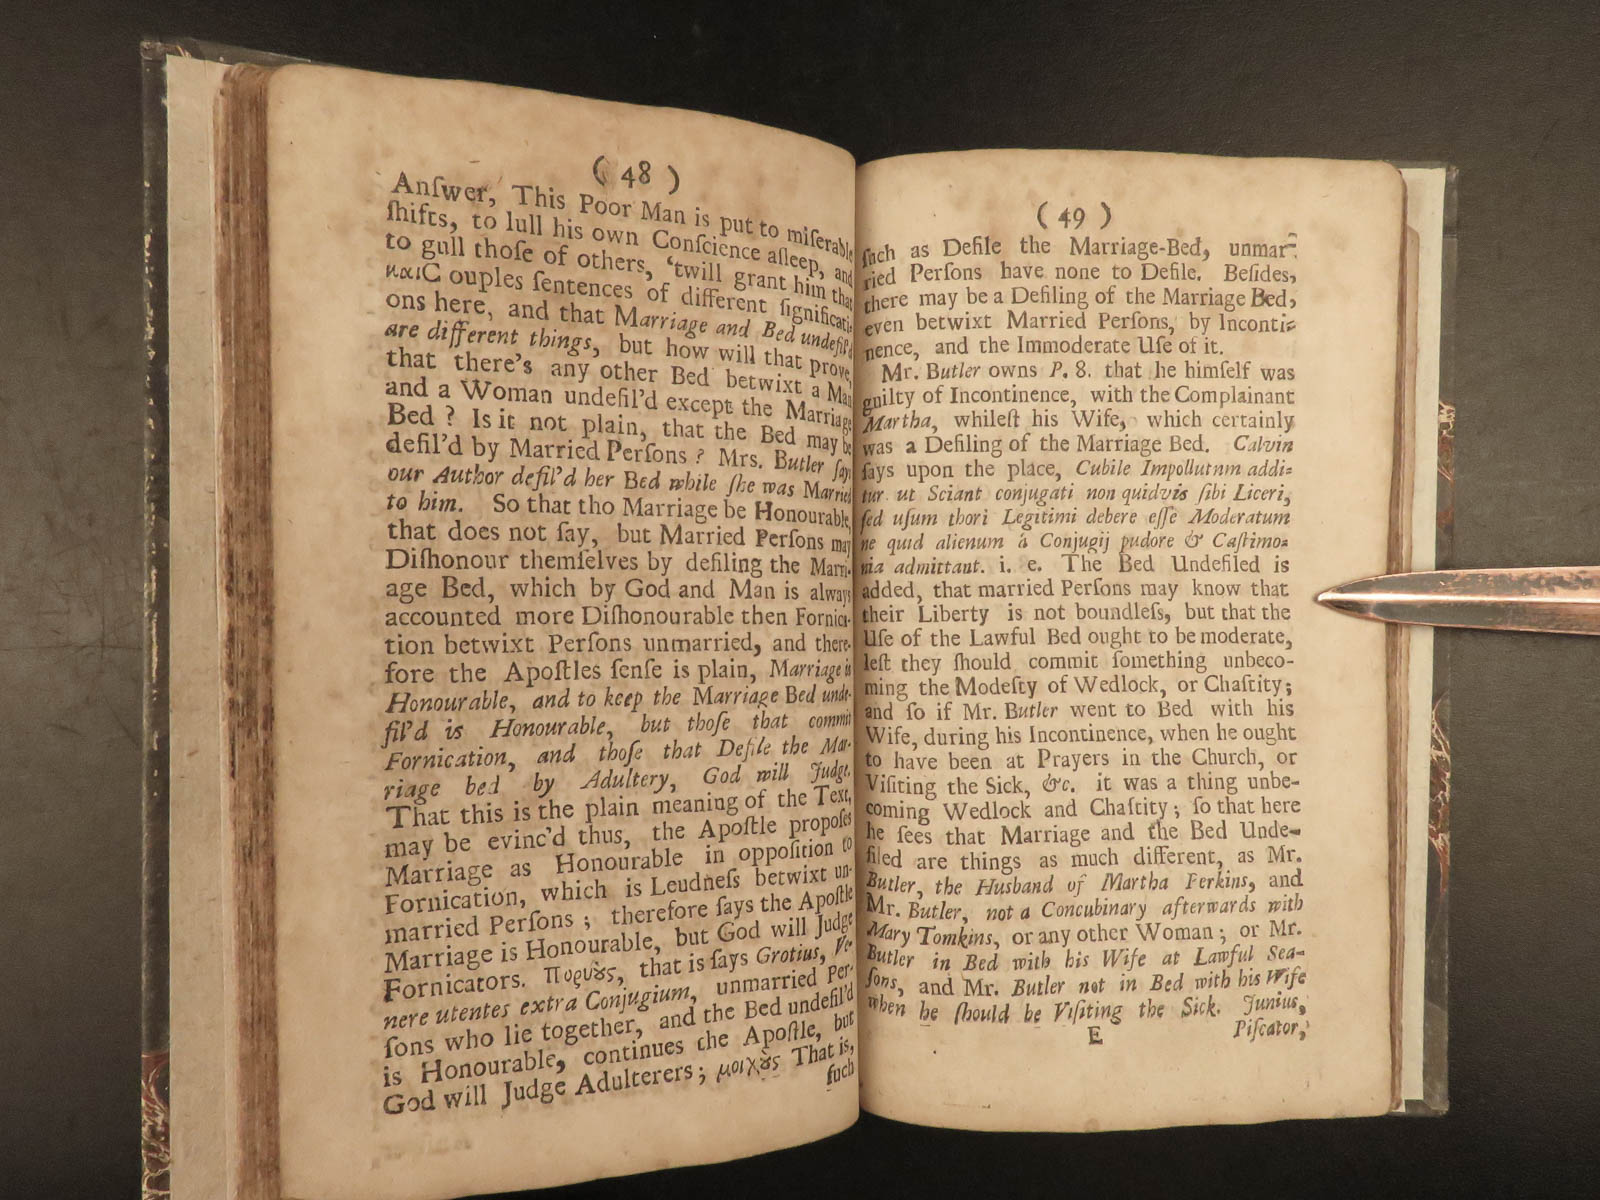 ( 48 )
Anſwer, This Poor Man is put to miſerable
ſhifts, to lull his own Conſcience aſleep, and
to gull thoſe of others, ‘twill grant him that
καιC ouples ſentences of different ſignificati-
ons here, and that Marriage and Bed undefil'd
are different things, but how will that prove,
that there's any other Bed betwixt a Man
and a Woman undefil'd except the Marriage
Bed ? Is it not plain, that the Bed may be
defil'd by Married Perſons ? Mrs. Butler ſays
our Author defil'd her Bed while ſhe was Married
to him. So that tho Marriage be Honourable,
that does not ſay, but Married Perſons may
Diſhonour themſelves by defiling the Marri-
age Bed, which by God and Man is always
accounted more Diſhonourable then Fornica-
tion betwixt Perſons unmarried, and there-
fore the Apoſtles ſenſe is plain, Marriage is
Honourable, and to keep the Marriage Bed unde-
fil'd is Honourable, but thoſe that commit
Fornication, and thoſe that Defile the Mar-
riage bed by Adultery, God will Judge.
That this is the plain meaning of the Text,
may be evinc'd thus, the Apoſtle propoſes
Marriage as Honourable in oppoſition to
Fornication, which is Leudneſs betwixt un-
married Perſons ; therefore ſays the Apoſtle
Marriage is Honourable, but God will Judge
Fornicators. Πορνȣς, that is ſays Grotius, Ve-
nere utentes extra Conjugium, unmarried Per-
ſons who lie together, and the Bed undefil'd
is Honourable, continues the Apoſtle, but
God will Judge Adulterers ; μοιχȣς That is,
ſuch
( 49 )
ſuch as Defile the Marriage-Bed, unmar-
ried Perſons have none to Defile. Beſides,
there may be a Defiling of the Marriage Bed,
even betwixt Married Perſons, by Inconti-
nence, and the Immoderate Uſe of it.
Mr. Butler owns P. 8. that he himſelf was
guilty of Incontinence, with the Complainant
Martha, whileſt his Wife, which certainly
was a Defiling of the Marriage Bed. Calvin
ſays upon the place, Cubile Impollutnm addi-
tur ut Sciant conjugati non quidvis ſibi Liceri,
ſed uſum thori Legitimi debere eſſe Moderatum
ne quid alienum á Conjugij pudore & Caſtimo-
nia admittant. i. e. The Bed Undefiled is
added, that married Perſons may know that
their Liberty is not boundleſs, but that the
Uſe of the Lawful Bed ought to be moderate,
leſt they ſhould commit ſomething unbeco-
ming the Modeſty of Wedlock, or Chaſtity;
and ſo if Mr. Butler went to Bed with his
Wife, during his Incontinence, when he ought
to have been at Prayers in the Church, or
Viſiting the Sick, &c. it was a thing unbe-
coming Wedlock and Chaſtity; ſo that here
he ſees that Marriage and the Bed Unde-
filed are things as much different, as Mr.
Butler, the Husband of Martha Perkins, and
Mr. Butler, not a Concubinary afterwards with
Mary Tomkins, or any other Woman; or Mr.
Butler in Bed with his Wife at Lawful Sea-
ſons, and Mr. Butler not in Bed with his Wife
when he ſhould be Viſiting the Sick. Junius,
E Piſcator,